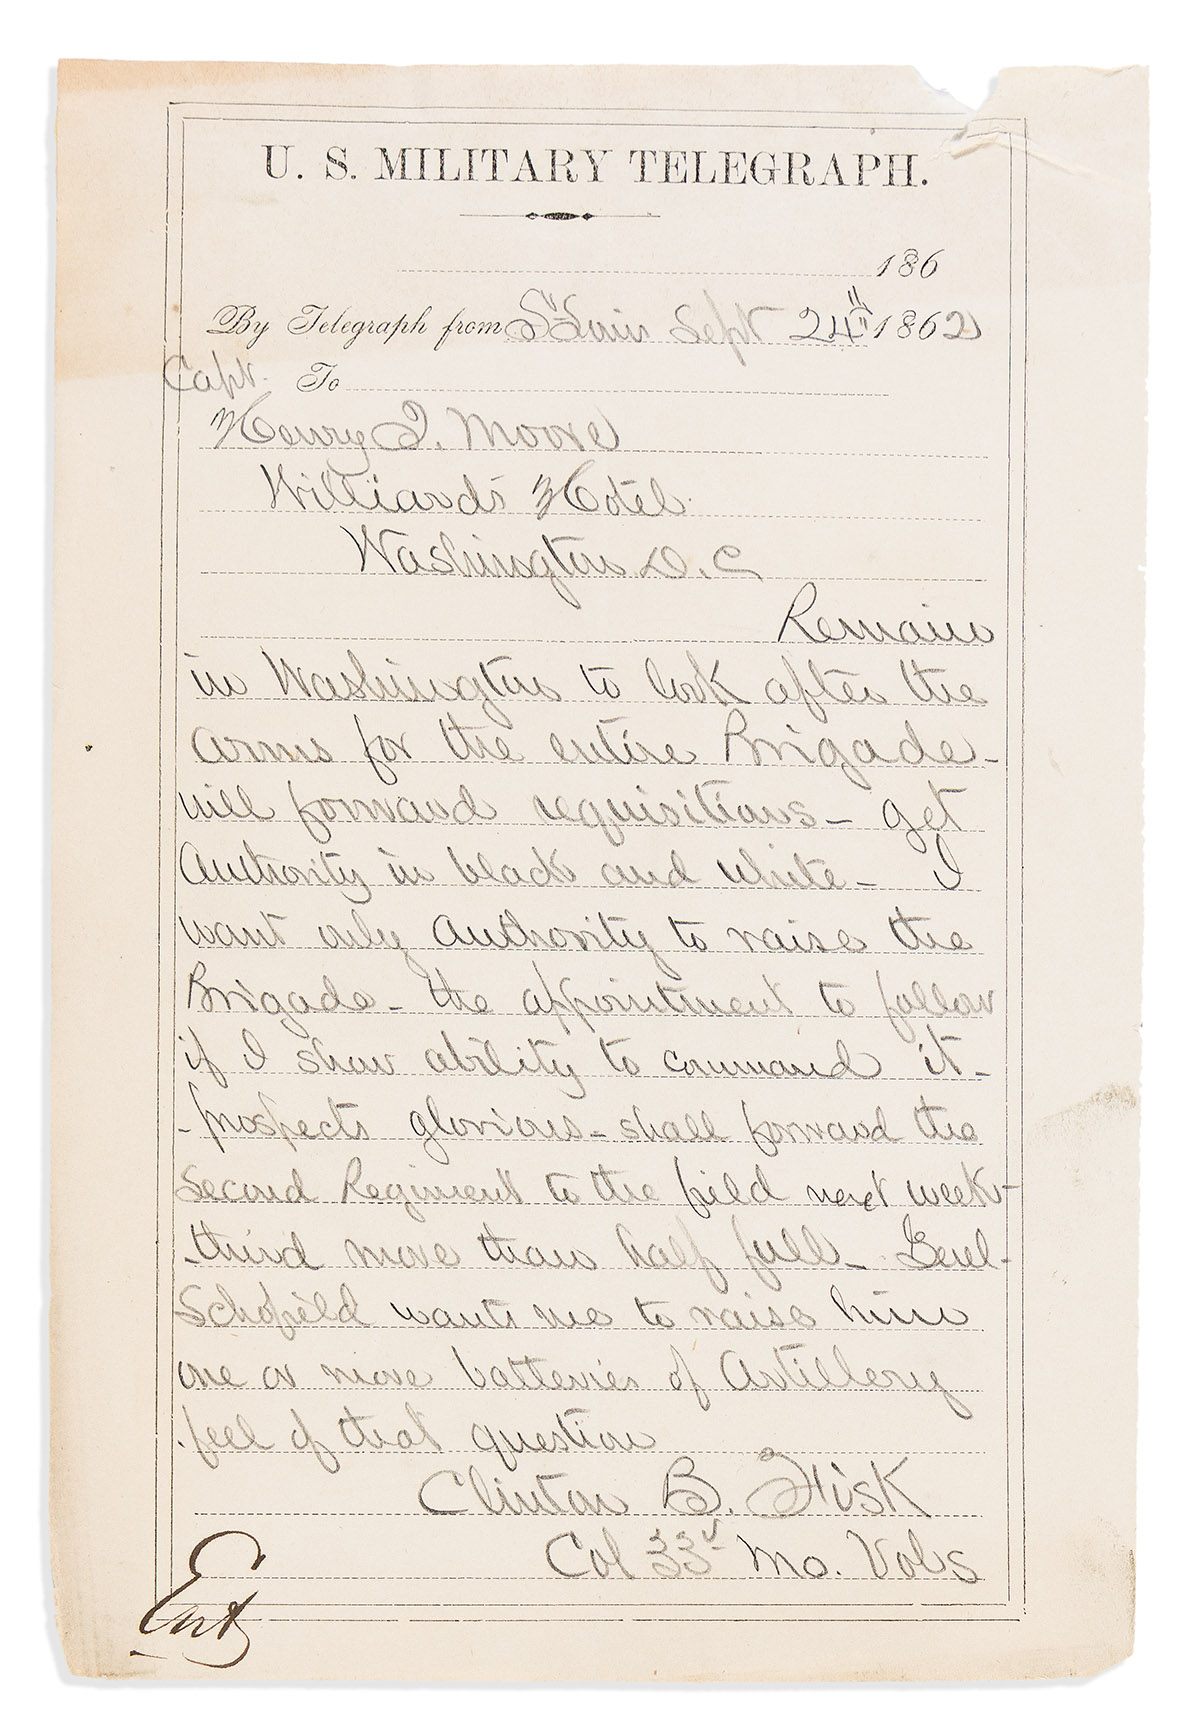 U. S. MILITARY TELEGRAPH.
186
By Telegraph from St Louis Sept 24" 1862
Capt. To
Henry I. Moore
Williards Hotel
Washington D. C
Remain
in Washington to look after the
arms for the entire Brigade -
will forward requisitions - get
Authority in black and white - I
want only Authority to raise the
Brigade - the appointment to follow
if I show ability to command it -
- prospects glorious - shall forward the
Second Regiment to the field next week -
- third more than half full - Genl -
Schofield wants me to raise him
one or more batteries of Artillery
feel of that question
Clinton B. Fisk
Col 33d Mo. Vols